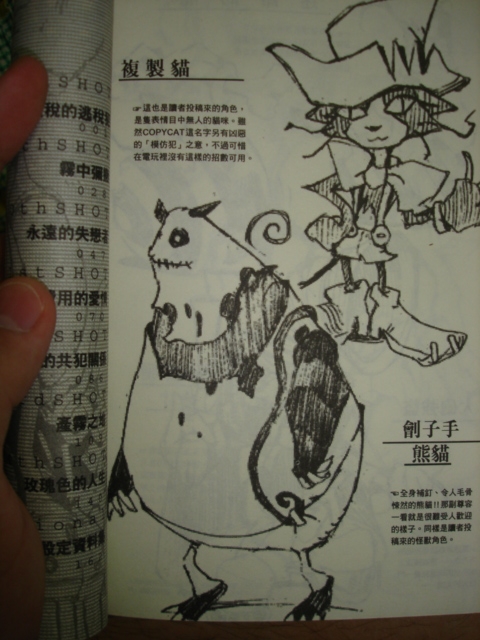 複製貓
☞這也是讀者投稿來的角色，
是隻表情目中無人的貓咪。雖
然COPYCAT這名字另有凶惡
的「模仿犯」之意，不過可惜
在電玩裡沒有這樣的招數可用。
劊子手
熊貓
☜全身補釘、令人毛骨
悚然的熊貓!!那副尊容
一看就是很難受人歡迎
的樣子。同樣是讀者投
稿來的怪獸角色。
稅的逃稅
thSHOT
霧中彌
thSHOT
永遠的失戀
047
thSHOT
用的愛情
070
SHOT
的共犯關係
dSHOT
產霧之
thSHOT
玫瑰色的人生
iona
設定資料